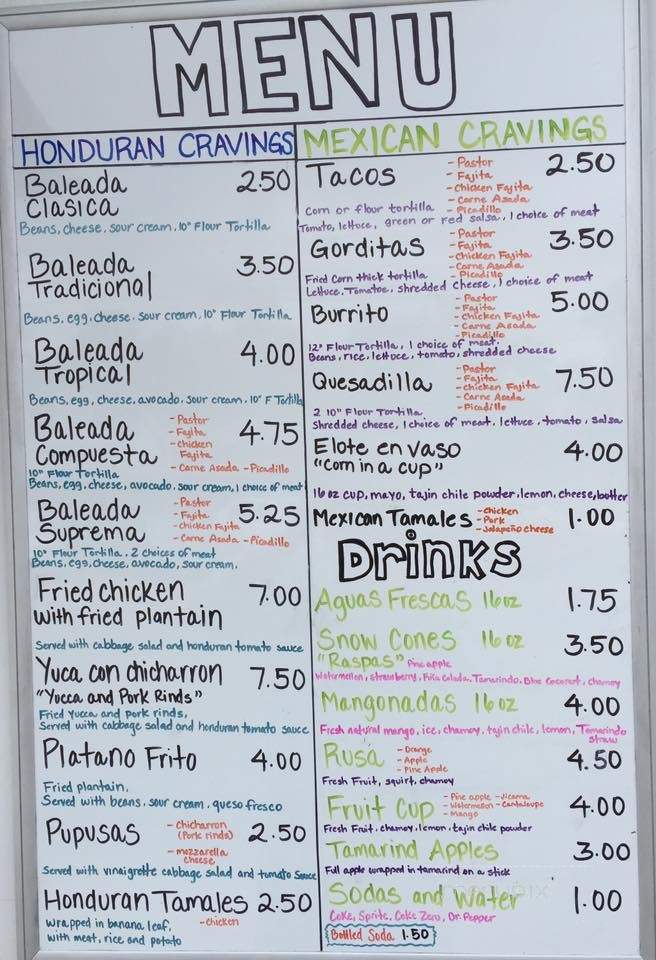 MENU
HONDURAN CRAVINGS
Baleada 2.50
Clasica
Beans, cheese, sour cream, 10" Flour Tortilla
Baleada 3.50
Tradicional
Beans, egg, cheese, sour cream, 10" Flour Tortilla
Baleada 4.00
Tropical
Beans, egg, cheese, avocado, sour cream, 10" F Tortilla
Baleada 4.75
Compuesta
- Pastor
- Fajita
- Chicken
Fajita
- Carne Asada - Picadillo
10" Flour Tortilla
Beans, egg, cheese, avocado, sour cream, 1 choice of meat
Baleada 5.25
Suprema
- Pastor
- Fajita
- Chicken Fajita
- Carne Asada - Picadillo
10" Flour Tortilla, 2 choices of meat
Beans, egg, cheese, avocado, sour cream,
Fried chicken 7.00
with fried plantain
Served with cabbage salad and honduran tomato sauce
Yuca con chicharron 7.50
"Yucca and Pork Rinds"
Fried Yucca and pork rinds,
Served with cabbage salad and honduran tomato sauce
Platano Frito 4.00
Fried plantain,
Served with beans, sour cream, queso fresco
Pupusas 2.50
- chicharron
(Pork rinds)
- mozzarella
cheese
Served with vinaigrette cabbage salad and tomato sauce
Honduran Tamales 2.50
- chicken
wrapped in banana leaf,
with meat, rice and potato
MEXICAN CRAVINGS
Tacos 2.50
- Pastor
- Fajita
- Chicken Fajita
- Carne Asada
- Picadillo
Corn or flour tortilla
Tomato, lettuce, green or red salsa, 1 choice of meat
Gorditas 3.50
- Pastor
- Fajita
- Chicken Fajita
- Carne Asada
- Picadillo
Fried corn thick tortilla
Lettuce, Tomatoe, shredded cheese, 1 choice of meat
Burrito 5.00
- Pastor
- Fajita
- Chicken Fajita
- Carne Asada
- Picadillo
12" Flour Tortilla, 1 choice of meat,
Beans, rice, lettuce, tomato, shredded cheese
Quesadilla 7.50
- Pastor
- Fajita
- Chicken Fajita
- Carne Asada
- Picadillo
2 10" Flour Tortilla
Shredded cheese, 1 choice of meat, lettuce, tomato, salsa
Elote en vaso 4.00
"Corn in a cup"
16 oz cup, mayo, tajin chile powder, lemon, cheese, butter
Mexican Tamales 1.00
- Chicken
- Pork
- Jalapeño cheese
Drinks
Aguas Frescas 16 oz 1.75
Snow Cones 16 oz 3.50
"Raspas" Pine apple
Watermelon, strawberry, Piña Colada, Tamarindo, Blue Coconut, chamoy
Mangonadas 16 oz 4.00
Fresh natural mango, ice, chamoy, tajin chile, lemon, Tamarindo
straw
Rusa 4.50
- Orange
- Apple
- Pine Apple
Fresh Fruit, squirt, chamoy
Fruit Cup 4.00
- Pine apple - Jicama
- Watermelon - Cantaloupe
- Mango
Fresh Fruit, chamoy, lemon, tajin chile powder
Tamarind Apples 3.00
Full apple wrapped in tamarind on a stick
Sodas and Water 1.00
Coke, Sprite, Coke Zero, Dr. Pepper
Bottled Soda 1.50